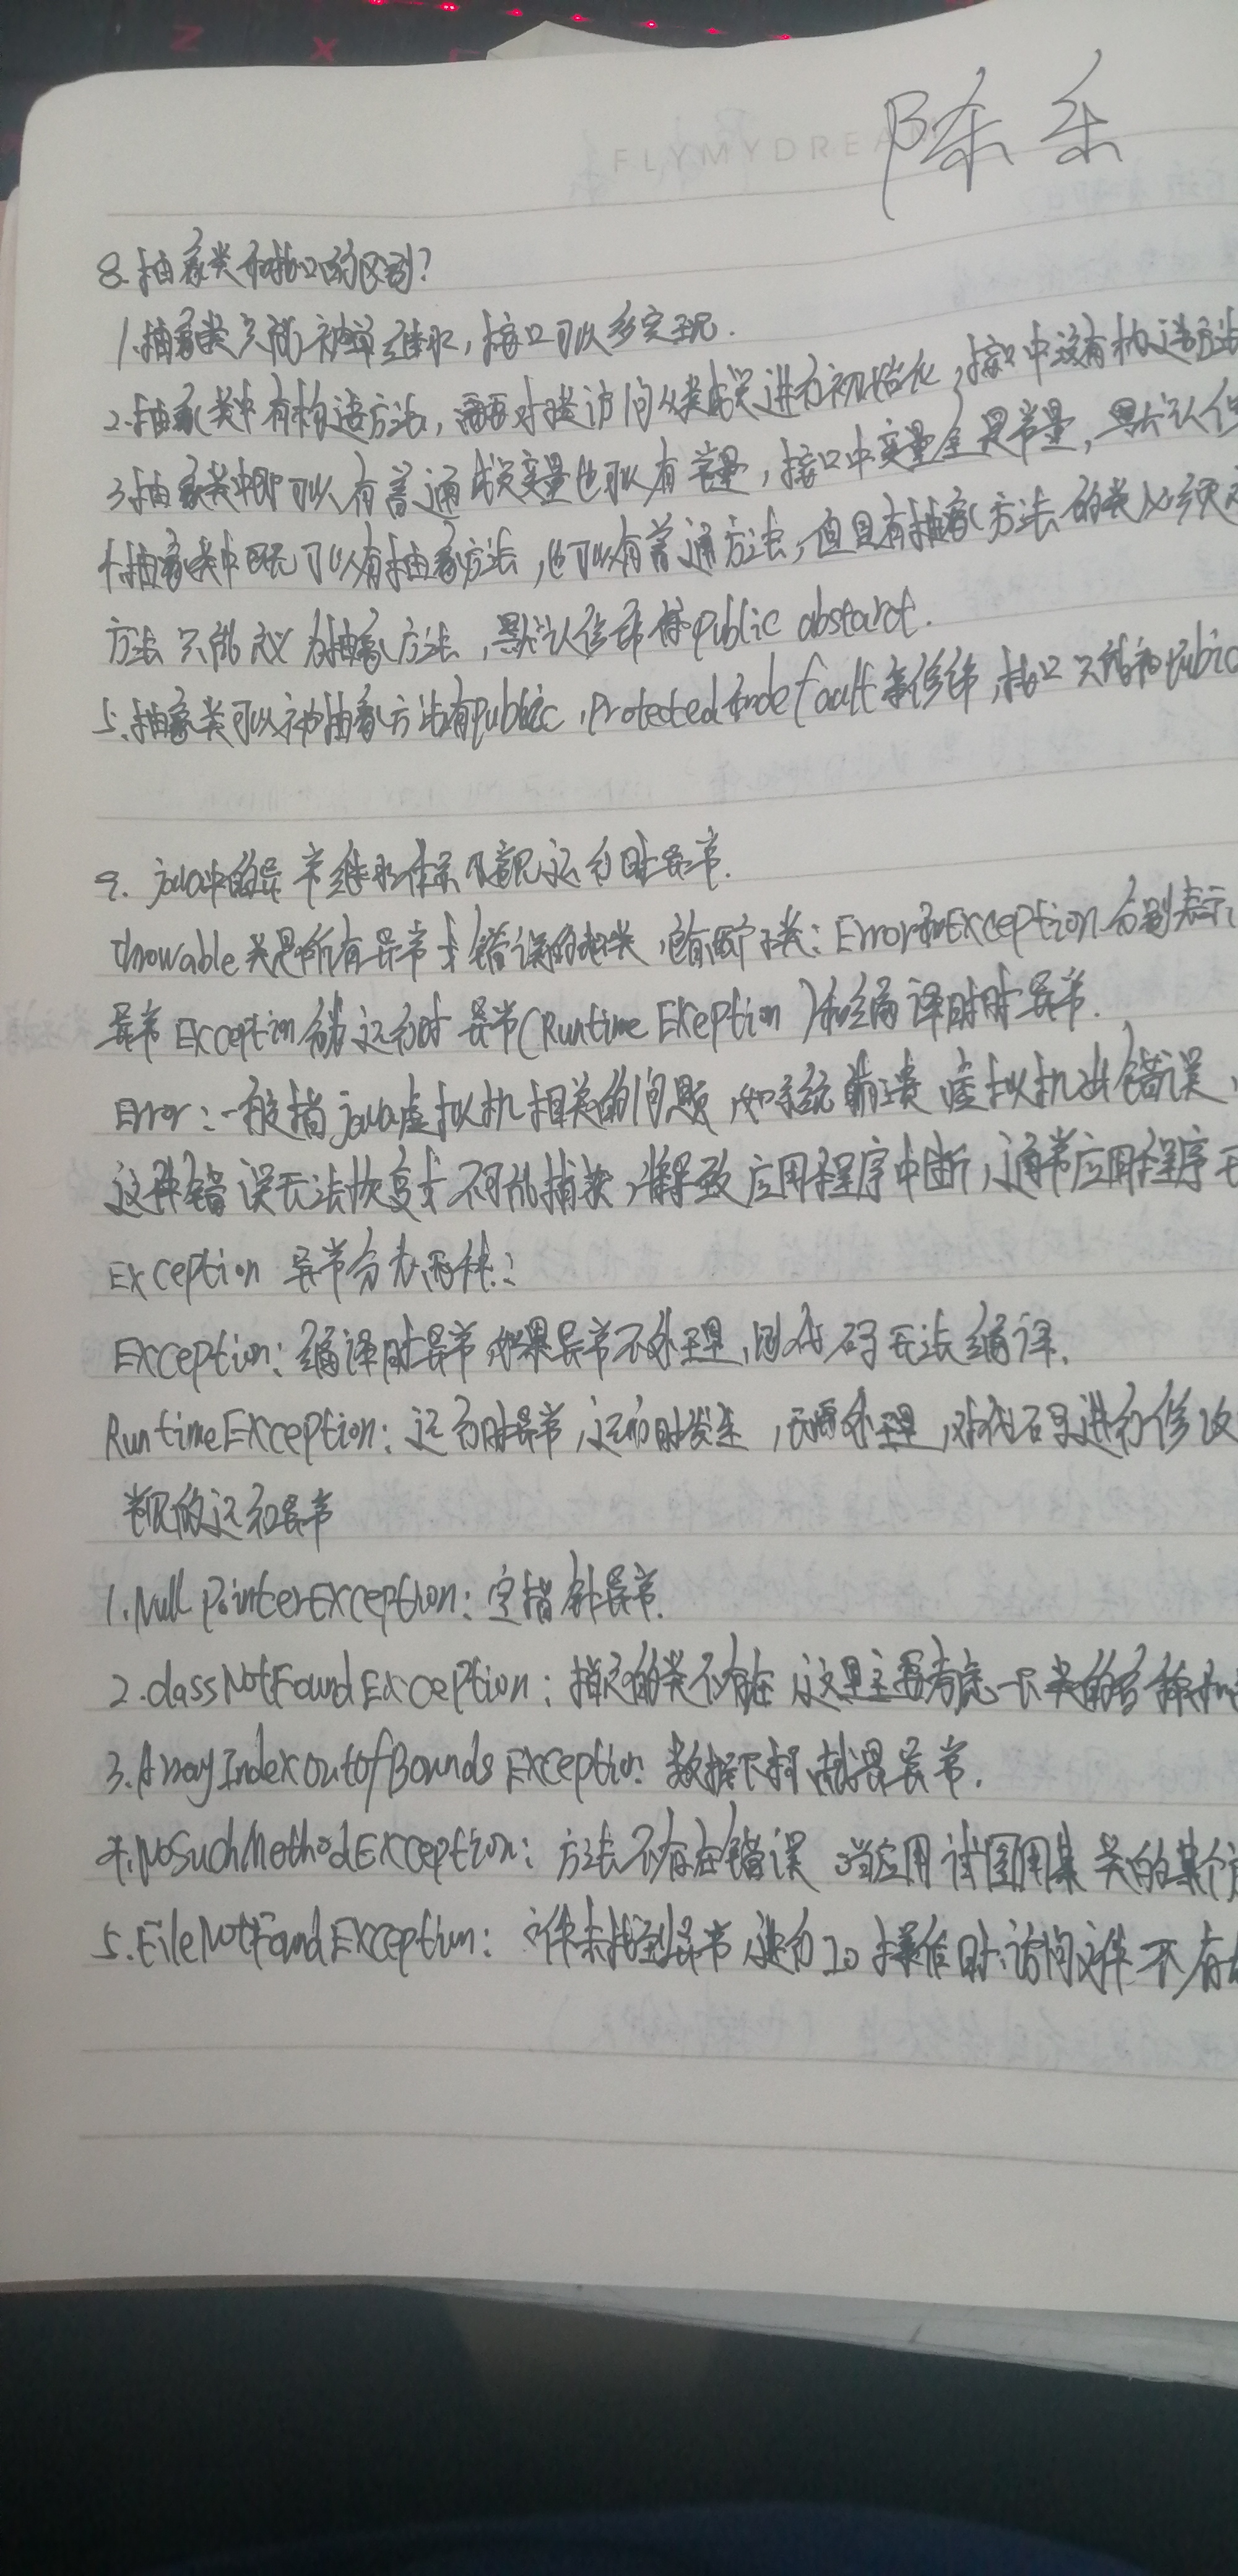 FLYMYDREA
陈乐
8.抽象类和接口的区别?
1.抽象类只能被单继承,接口可以多实现.
2.抽象类中有构造方法,需要对类访问从类成员进行初始化,接口中没有构造方法
3.抽象类中即可以有普通成员变量也可以有常量,接口中变量全是常量,默认修
4.抽象类中既可以有抽象方法,也可以有普通方法,但且有抽象方法的类必须
方法只能定义为抽象方法,默认修饰符public abstarct.
5.抽象类可以被抽象方法有public,Protected和default等修饰,接口只能被Pubic
9. java中的异常继承体系及常见运行时异常.
throwable类是所有异常才错误的超类,它有两个子类:Error和Exception分别表示
异常Exception分为运行时异常(Runtime EXeption)和编译时时异常.
Error:一般指java虚拟机相关的问题,如系统崩溃 虚拟机出错误,
这种错误无法恢复才不可能捕获,将导致应用程序中断,通常应用程序无
Exception 异常分为两种:
Exception:编译时异常 如果异常不处理,则代码无法编译.
RuntimeException:运行时异常,运行时发生,无需处理,对代码进行修改
常见的运行异常
1.NullPointerException:空指针异常.
2.classNotFoundException:指定的类不存在 这里主要考虑一下类的名称和
3.ArrayIndexoutofBoundsException:数据下标越界异常.
4.NoSuchMethodException:方法不存在错误 当应用试图用某类的某个方
5.FileNotFoundException:文件未找到异常,进行IO操作时访问文件不存在